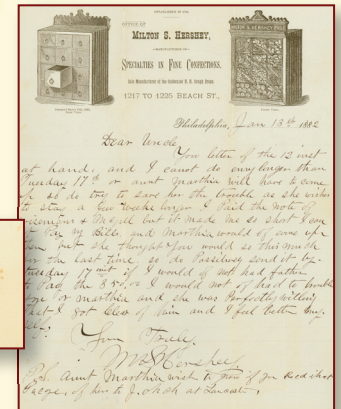 OFFICE OF
MILTON S. HERSHEY,
MANUFACTURER OF
SPECIALTIES IN FINE CONFECTIONS.
Sole Manufacturer of the Celebrated H. H. Cough Drops.
1217 TO 1225 BEACH ST.,
Philadelphia, Jan 13th 1882
Dear Uncle
Your letter of the 12 inst
at hand, and I cannot do any longer than
Tuesday 17th or aunt Marthia will have to come
up so do try to save her the trouble as she wishes
to stay a few weeks longer I paid the note of
& but it made me so short I can
Pay my Bills, and Marthia would of come up
but she thought you would so this much
for the last time, so do Possibly send it by
tuesday 17 inst if I would of not had father
to Pay the 350.00 I would not of had to trouble
you or marthia and she was Perfectly willing
that I got clear of him and I feel better my
self.
Yours Truly,
M S Hershey
P.S. Aunt Marthia wish to know if you Recd that
of hers to J. at Lancaster.